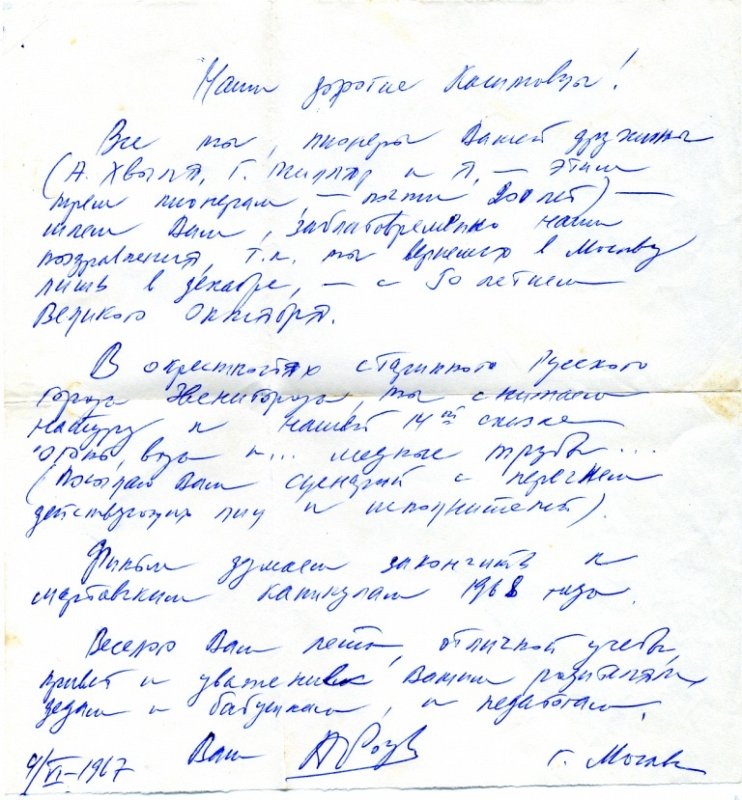 Наши дорогие Касимовцы!
Все мы, пионеры Вашей дружины
(А. Хвыля, Г. Милляр и я, — этим
трем пионерам, — почти 200 лет) —
шлем Вам, заблаговременно наши
поздравления, т.к. мы вернемся в Москву
лишь в декабре, — с 50 летием
Великого Октября.
В окрестностях старинного Русского
города Звенигорода, мы снимаем
натуру к нашей 14ой сказке
"Огонь, вода и... медные трубы...
(Посылаем Вам сценарий с перечнем
действующих лиц и исполнителей).
Фильм думаем закончить к
мартовским каникулам 1968 года.
Веселого Вам лета, отличной учебы,
привет и уважение Вашим родителям,
дедам и бабушкам, и педагогам.
Ваш АРоу
VI-1967 г. Москва